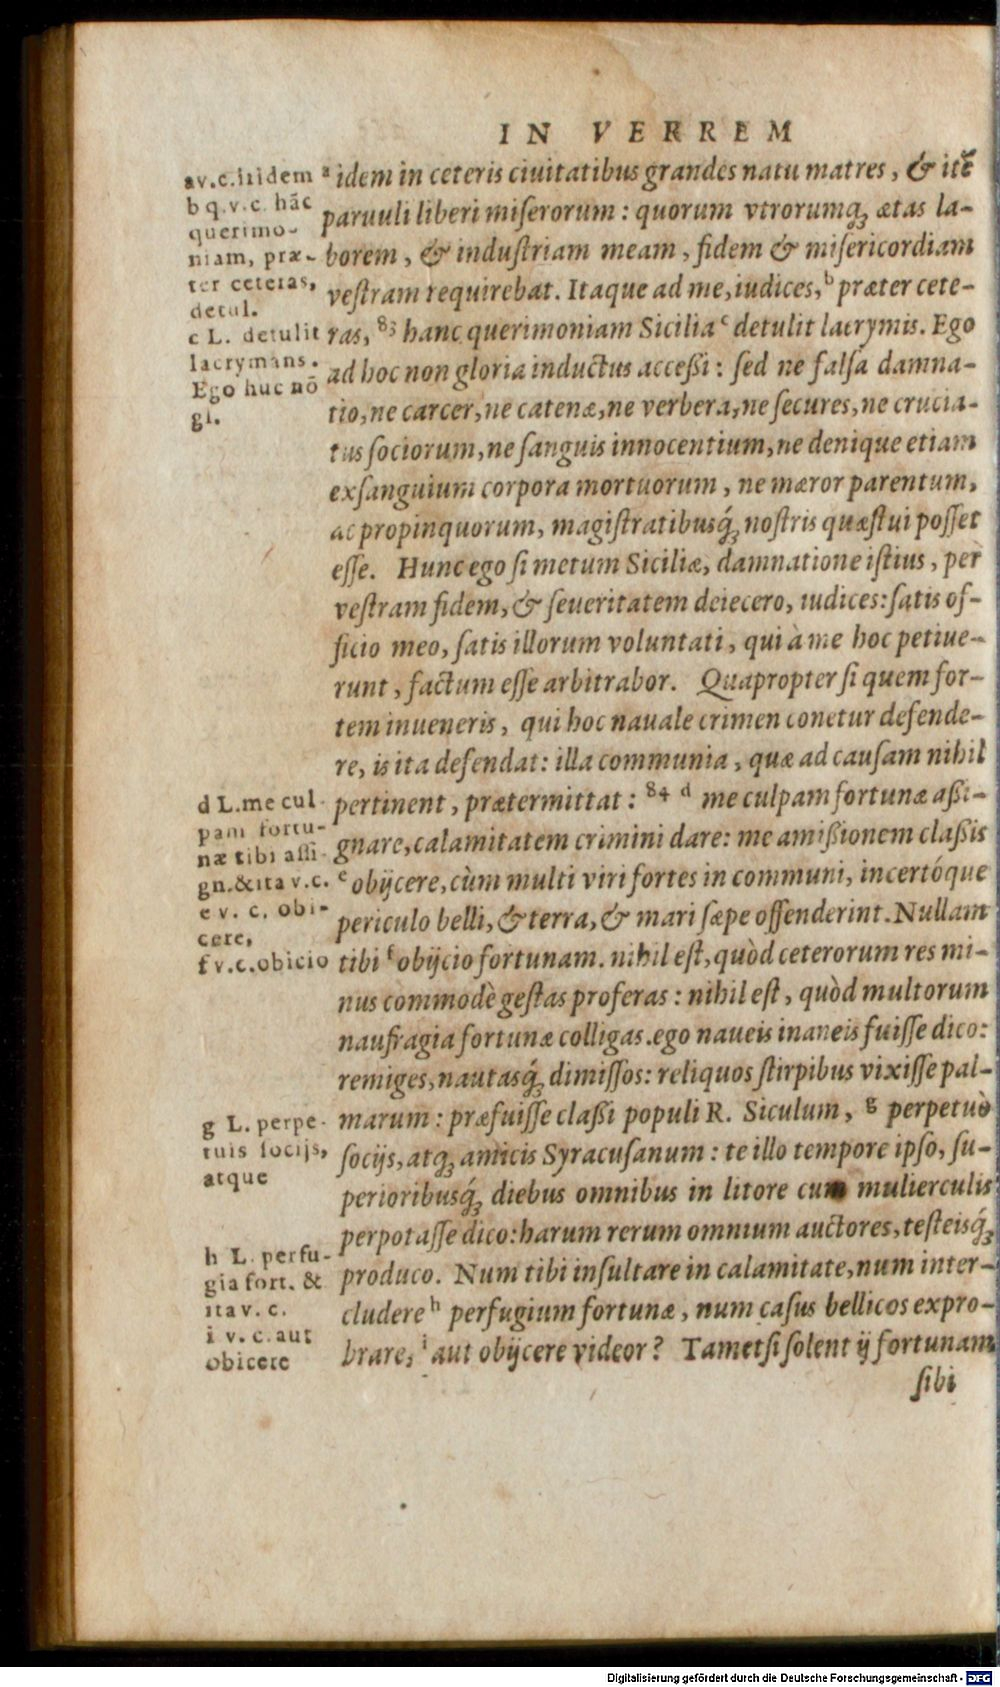 IN VERREM
a v.c. itidem
b q.v.c. hāc
querimo-
niam, præ-
ter ceteras,
detul.
c L. detulit
lacrymans.
Ego huc nō
gl.
d L. me cul-
pam fortu-
næ tibi assi-
gn. & ita v.c.
e v. c. obi-
cere,
f v.c. obicio
g L. perpe-
tuis socijs,
atque
h L. perfu-
gia fort. &
ita v. c.
i v. c. aut
obicere
ᵃ idem in ceteris ciuitatibus grandes natu matres, & itē
paruuli liberi miserorum: quorum vtrorumqꝫ ætas la-
borem, & industriam meam, fidem & misericordiam
vestram requirebat. Itaque ad me, iudices, ᵇ præter cete-
ras, ⁸³ hanc querimoniam Sicilia ᶜ detulit lacrymis. Ego
ad hoc non gloria inductus accessi: sed ne falsa damna-
tio, ne carcer, ne catenæ, ne verbera, ne secures, ne crucia-
tus sociorum, ne sanguis innocentium, ne denique etiam
exsanguium corpora mortuorum, ne mæror parentum,
ac propinquorum, magistratibusq́ꝫ nostris quæstui posset
esse. Hunc ego si metum Siciliæ, damnatione istius, per
vestram fidem, & seueritatem deiecero, iudices: satis of-
ficio meo, satis illorum voluntati, qui à me hoc petiue-
runt, factum esse arbitrabor. Quapropter si quem for-
tem inueneris, qui hoc nauale crimen conetur defende-
re, is ita defendat: illa communia, quæ ad causam nihil
pertinent, prætermittat: ⁸⁴ ᵈ me culpam fortunæ assi-
gnare, calamitatem crimini dare: me amissionem classis
ᵉ obijcere, cùm multi viri fortes in communi, incertóque
periculo belli, & terra, & mari sæpe offenderint. Nullam
tibi ᶠ obijcio fortunam. nihil est, quòd ceterorum res mi-
nus commodè gestas proferas: nihil est, quòd multorum
naufragia fortunæ colligas. ego naueis inaneis fuisse dico:
remiges, nautasq́ꝫ dimissos: reliquos stirpibus vixisse pal-
marum: præfuisse classi populi R. Siculum, ᵍ perpetuò
socijs, atqꝫ amicis Syracusanum: te illo tempore ipso, su-
perioribusq́ꝫ diebus omnibus in litore cum mulierculis
perpotasse dico: harum rerum omnium auctores, testeisq́ꝫ
produco. Num tibi insultare in calamitate, num inter-
cludere ʰ perfugium fortunæ, num casus bellicos expro-
brare, ⁱ aut obijcere videor? Tametsi solent ij fortunam
sibi
Digitalisierung gefördert durch die Deutsche Forschungsgemeinschaft - DFG